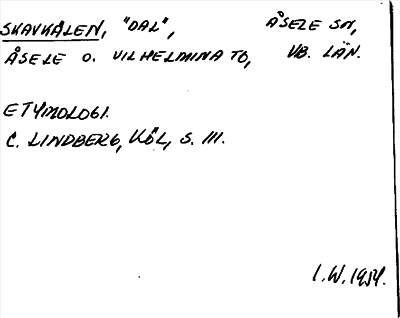 SKAVKÅLEN, "DAL", ÅSELE SN,
ÅSELE O. VILHELMINA TO, VB. LÄN.
ETYMOLOGI.
C. LINDBERG, KÖL, S. 111.
I.W. 1954.